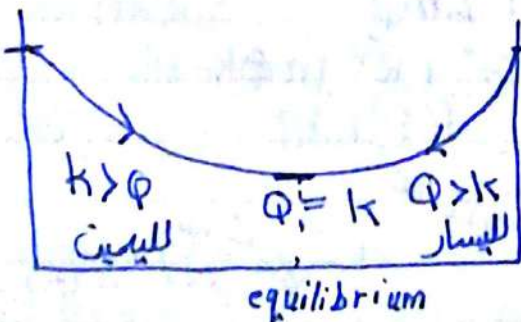 k > Q
لليمين
Q = k
Q > k
لليسار
equilibrium